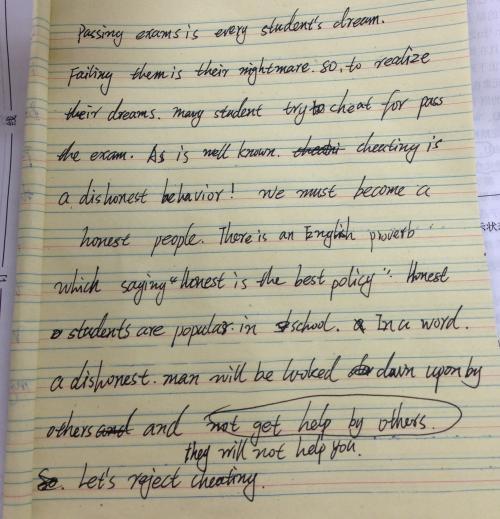 Passing exams is every student's dream.
Failing them is their nightmare. So, to realize
their dreams. many student try to cheat for pass
the exam. As is well known. cheating is
a dishonest behavior! We must become a
honest people. There is an English proverb
which saying "Honest is the best policy". Honest
students are popular in school. In a word.
a dishonest. man will be looked down upon by
others and not get help by others.
they will not help you.
So. Let's reject cheating.
线